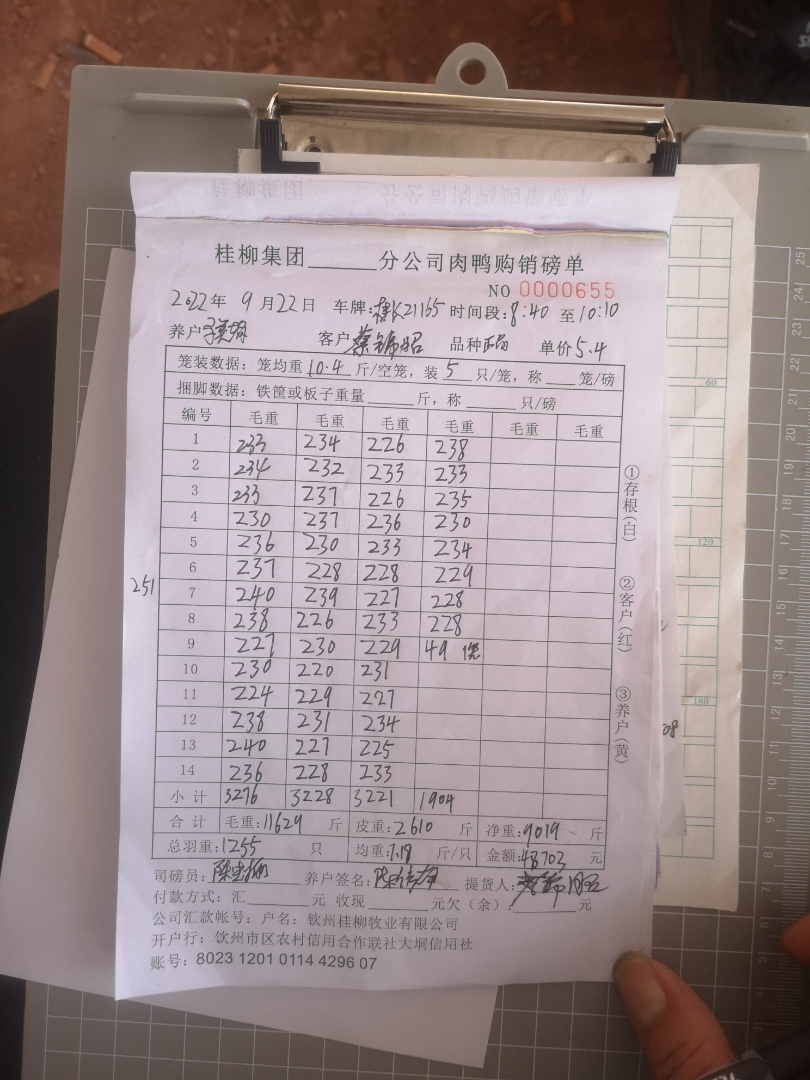 桂柳集团______分公司肉鸭购销磅单
NO 0000655
2022年 9月22日 车牌:桂K21165 时间段:8:40 至10:10
养户 客户 品种 单价5.4
笼装数据:笼均重10.4斤/空笼,装5只/笼,称___笼/磅
捆脚数据:铁筐或板子重量_____斤,称_____只/磅
编号 毛重 毛重 毛重 毛重 毛重 毛重
1 233 234 226 238
2 234 232 233 233
3 233 237 226 235
4 230 237 236 230
5 236 230 233 234
6 237 228 228 229
251
7 240 239 227 228
8 238 226 233 228
9 227 230 229 49
10 230 220 231
11 224 229 227
12 238 231 234
13 240 227 225
14 236 228 233
小计 3276 3228 3221 1904
合计 毛重:11629 斤 皮重:2610 斤 净重:9019 斤
总羽重:1255 只 均重:7.19 斤/只 金额:48703 元
司磅员: 养户签名: 提货人:
付款方式:汇______元 收现______元欠(余):______元
公司汇款帐号:户名:钦州桂柳牧业有限公司
开户行:钦州市区农村信用合作联社大垌信用社
账号:8023 1201 0114 4296 07
①存根(白)
②客户(红)
③养户(黄)
25
24
23
22
21
20
19
18
17
16
15
14
13
12
11
10
60
120
180